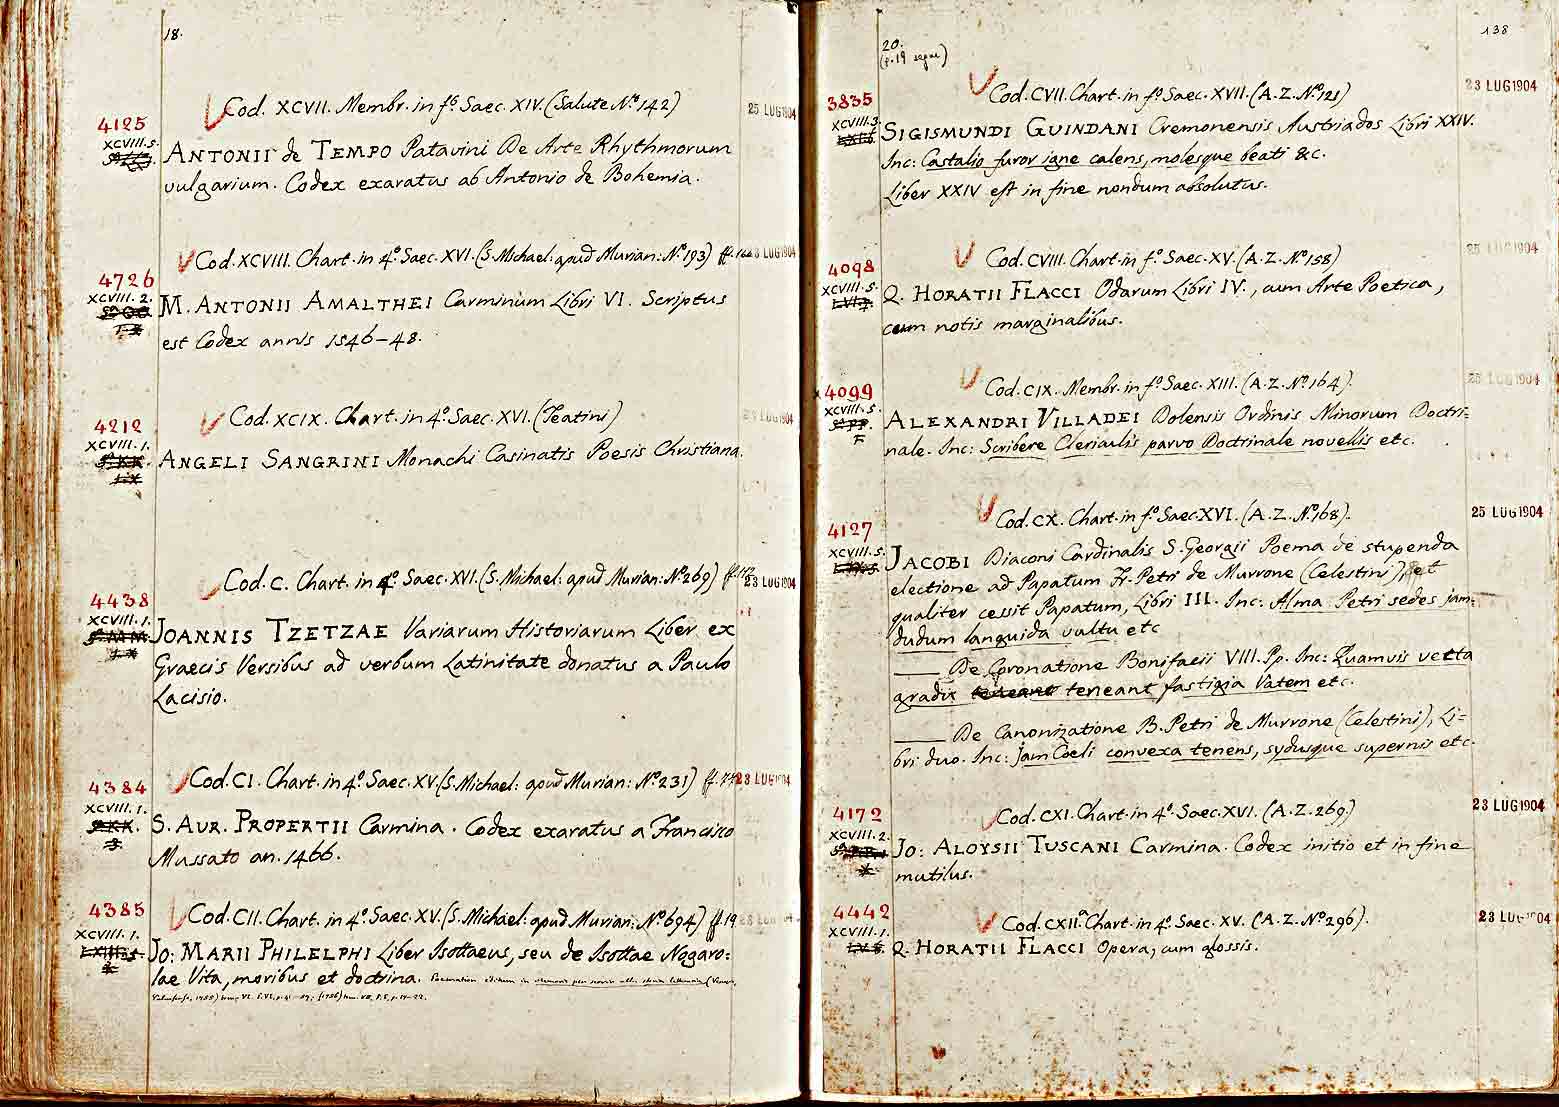 18.
Cod. XCVII. Membr. in fº Saec. XIV. (Salute Nº 142)
25 LUG 1904
4125
XCVIII.5.
ANTONII de TEMPO Patavini De Arte Rhythmorum
vulgarium. Codex exaratus ab Antonio de Bohemia.
Cod. XCVIII. Chart. in 4º Saec. XVI. (S. Michael: apud Murian: Nº 193) ff.
23 LUG 1904
4726
XCVIII. 2.
M. ANTONII AMALTHEI Carminum Libri VI. Scriptus
est Codex annis 1546-48.
Cod. XCIX. Chart. in 4º Saec. XVI. (Teatini)
LUG 1904
4212
XCVIII. 1.
ANGELI SANGRINI Monachi Casinatis Poesis Christiana.
Cod. C. Chart. in 4º Saec. XVI. (S. Michael: apud Murian: Nº 269) ff.
23 LUG 1904
4438
XCVIII. 1.
JOANNIS TZETZAE Variarum Historiarum Liber ex
Graecis Versibus ad verbum Latinitate donatus a Paulo
Lacisio.
Cod. CI. Chart. in 4º Saec. XV. (S. Michael: apud Murian: Nº 231) ff.
23 LUG 1904
4384
XCVIII. 1.
S. AUR. PROPERTII Carmina. Codex exaratus a Francisco
Mussato an. 1466.
Cod. CII. Chart. in 4º Saec. XV. (S. Michael: apud Murian: Nº 694) ff. 19
4385
XCVIII. 1.
JO: MARII PHILELPHI Liber Isottaeus, seu de Isottae Nogaro:
lae Vita, moribus et doctrina.
138
20.
(p. 19 segue)
Cod. CVII. Chart. in fº Saec. XVII. (A. Z. Nº 121)
23 LUG 1904
3835
XCVIII.3.
SIGISMUNDI GUINDANI Cremonensis Austriados Libri XXIV.
Inc: Castalio furor igne calens, molesque beati &c.
Liber XXIV est in fine nondum absolutus.
Cod. CVIII. Chart. in fº Saec. XV. (A. Z. Nº 158)
25 LUG 1904
4098
XCVIII. 5.
Q. HORATII FLACCI Odarum Libri IV., cum Arte Poetica,
cum notis marginalibus.
Cod. CIX. Membr. in fº Saec. XIII. (A. Z. Nº 164).
25 LUG 1904
4099
XCVIII. 5.
ALEXANDRI VILLADEI Dolensis Ordinis Minorum Doctri-
nale. Inc: Scribere Clericulis parvo Doctrinale novellis etc.
Cod. CX. Chart. in fº Saec. XVI. (A. Z. Nº 168).
25 LUG 1904
4127
XCVIII. 5.
JACOBI Diaconi Cardinalis S. Georgii Poema de stupenda
electione ad Papatum Fr. Petri de Murrone (Celestini), et
qualiter cessit Papatum, Libri III. Inc: Alma Petri sedes jam-
dudum languida vultu etc
De Coronatione Bonifacii VIII. Pp. Inc: Quamvis vetta
gradis teneant fastigia Vatem etc.
De Canonizatione B. Petri de Murrone (Celestini), Li=
bri duo. Inc: Jam Coeli convexa tenens, sydusque supernis etc.
Cod. CXI. Chart. in 4º Saec. XVI. (A. Z. 269.)
23 LUG 1904
4172
XCVIII. 2.
JO: ALOYSII TUSCANI Carmina. Codex initio et in fine
mutilus.
Cod. CXII. Chart. in 4º Saec. XV. (A. Z. Nº 296).
23 LUG 1904
4442
XCVIII. 1.
Q. HORATII FLACCI Opera, cum glossis.